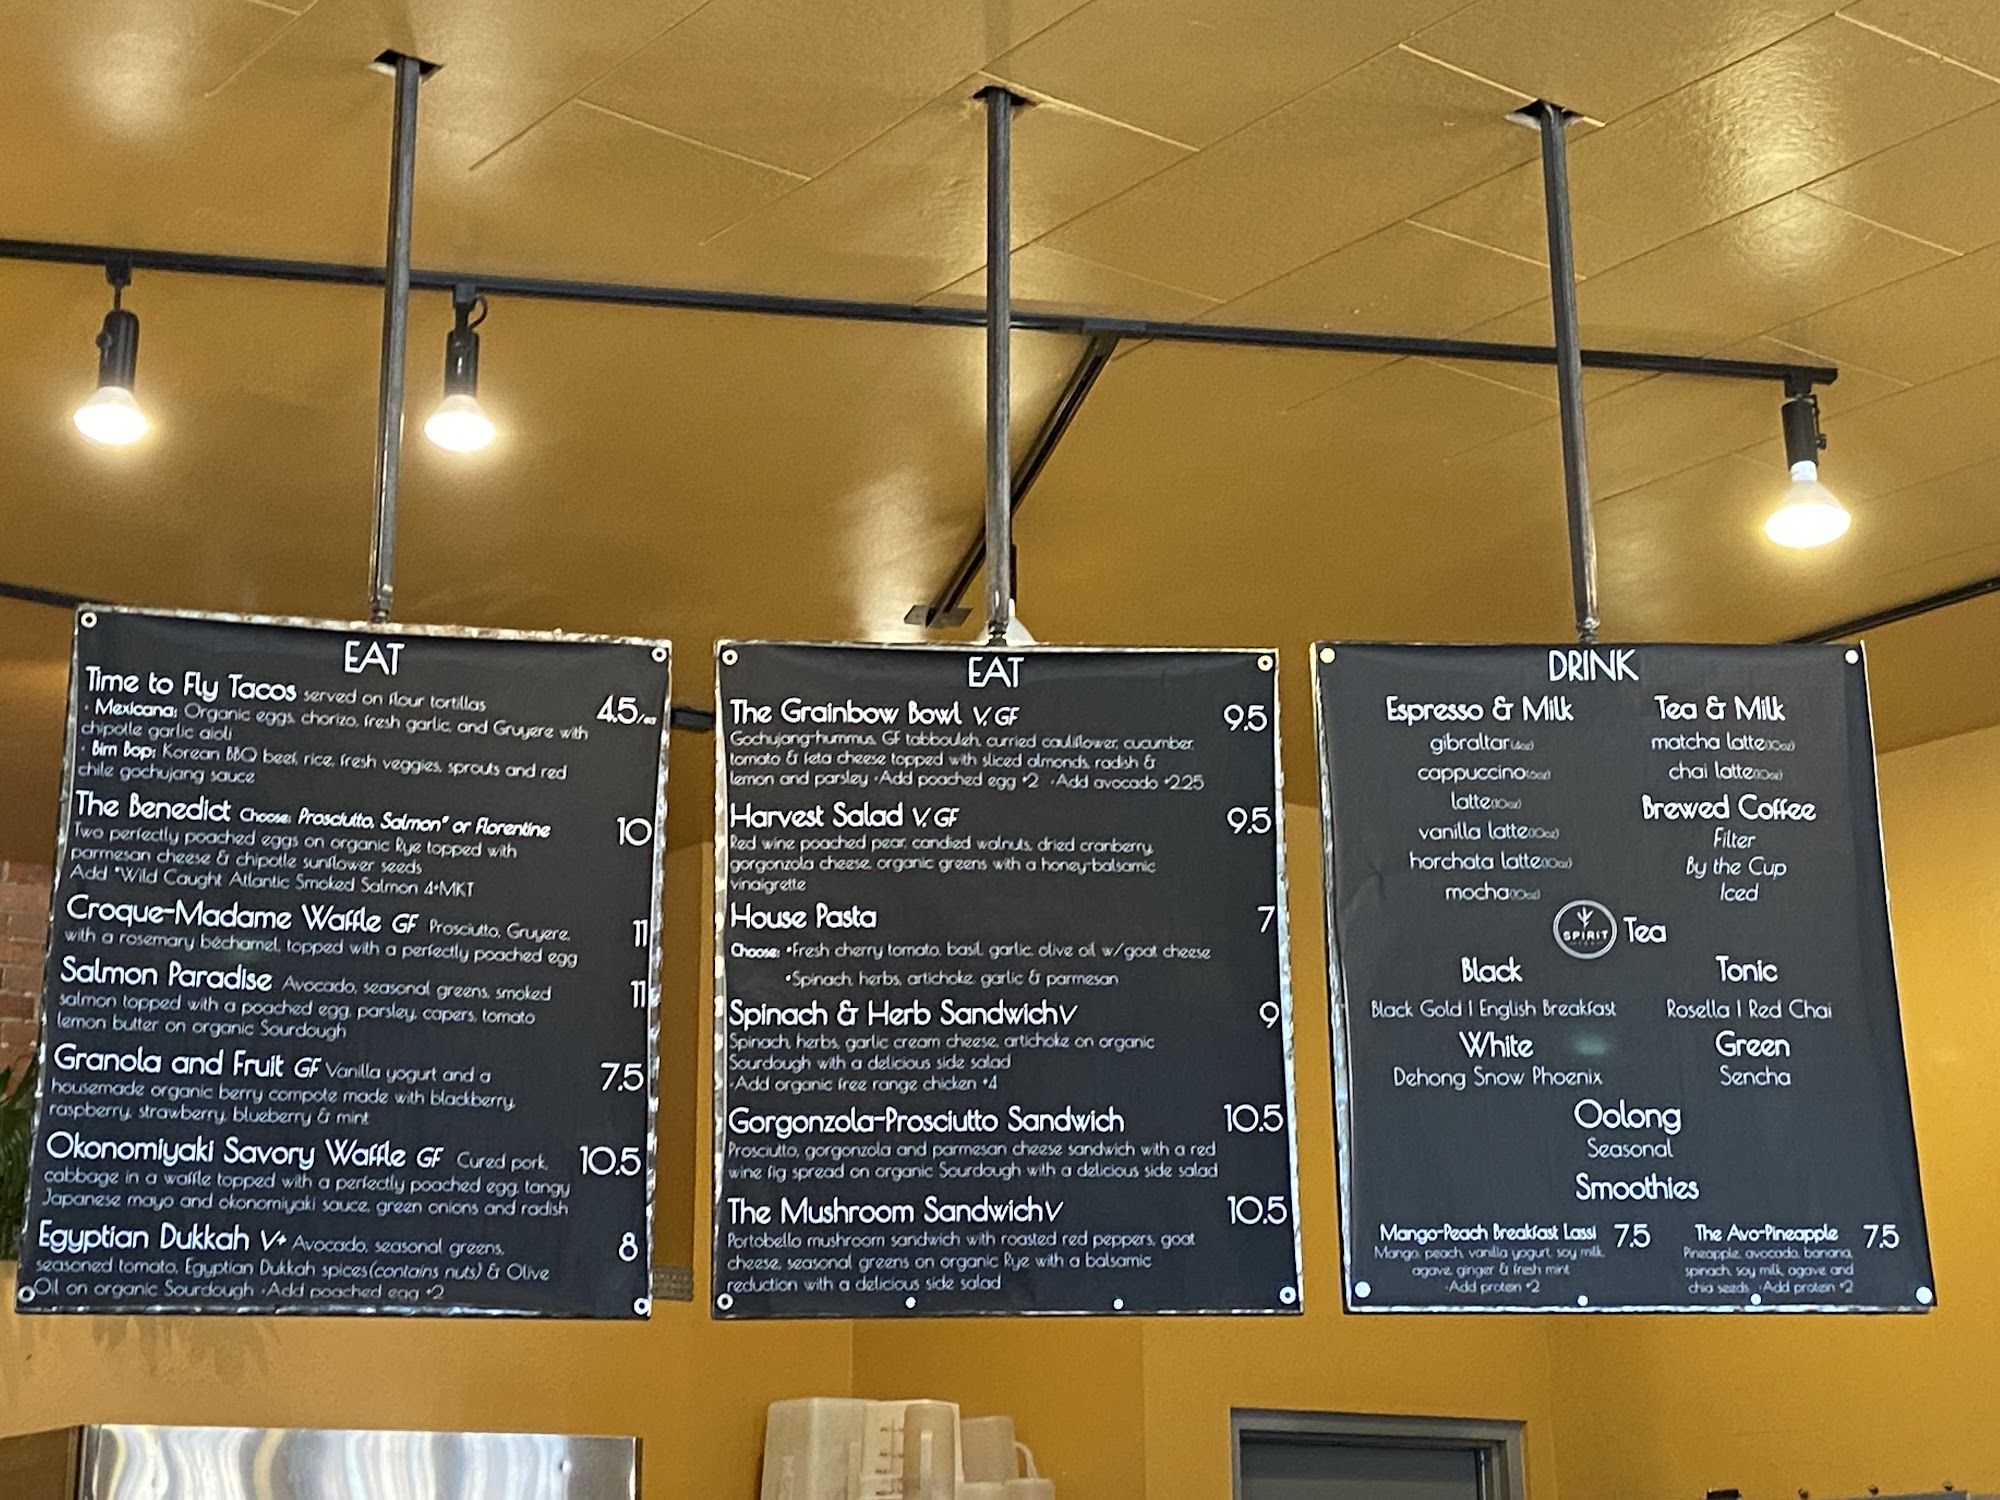 EAT
Time to Fly Tacos served on flour tortillas 4.5/ea
· Mexicana: Organic eggs, chorizo, fresh garlic, and Gruyere with
chipotle garlic aioli
· Bim Bop: Korean BBQ beef, rice, fresh veggies, sprouts and red
chile gochujang sauce
The Benedict Choose: Prosciutto, Salmon* or Florentine 10
Two perfectly poached eggs on organic Rye topped with
parmesan cheese & chipotle sunflower seeds
Add *Wild Caught Atlantic Smoked Salmon 4+MKT
Croque-Madame Waffle GF Prosciutto, Gruyere, 11
with a rosemary béchamel, topped with a perfectly poached egg
Salmon Paradise Avocado, seasonal greens, smoked 11
salmon topped with a poached egg, parsley, capers, tomato
lemon butter on organic Sourdough
Granola and Fruit GF Vanilla yogurt and a 7.5
housemade organic berry compote made with blackberry,
raspberry, strawberry, blueberry & mint
Okonomiyaki Savory Waffle GF Cured pork, 10.5
cabbage in a waffle topped with a perfectly poached egg, tangy
Japanese mayo and okonomiyaki sauce, green onions and radish
Egyptian Dukkah V+ Avocado, seasonal greens, 8
seasoned tomato, Egyptian Dukkah spices(contains nuts) & Olive
Oil on organic Sourdough ·Add poached egg +2
EAT
The Grainbow Bowl V, GF 9.5
Gochujang-hummus, GF tabbouleh, curried cauliflower, cucumber,
tomato & feta cheese topped with sliced almonds, radish &
lemon and parsley ·Add poached egg +2 ·Add avocado +2.25
Harvest Salad V, GF 9.5
Red wine poached pear, candied walnuts, dried cranberry,
gorgonzola cheese, organic greens with a honey-balsamic
vinaigrette
House Pasta 7
Choose: •Fresh cherry tomato, basil, garlic, olive oil w/goat cheese
•Spinach, herbs, artichoke, garlic & parmesan
Spinach & Herb Sandwich V 9
Spinach, herbs, garlic cream cheese, artichoke on organic
Sourdough with a delicious side salad
·Add organic free range chicken +4
Gorgonzola-Prosciutto Sandwich 10.5
Prosciutto, gorgonzola and parmesan cheese sandwich with a red
wine fig spread on organic Sourdough with a delicious side salad
The Mushroom Sandwich V 10.5
Portobello mushroom sandwich with roasted red peppers, goat
cheese, seasonal greens on organic Rye with a balsamic
reduction with a delicious side salad
DRINK
Espresso & Milk
gibraltar(4oz)
cappuccino(6oz)
latte(10oz)
vanilla latte(10oz)
horchata latte(10oz)
mocha(10oz)
Tea & Milk
matcha latte(10oz)
chai latte(10oz)
Brewed Coffee
Filter
By the Cup
Iced
SPIRIT Tea
Black
Black Gold | English Breakfast
Tonic
Rosella | Red Chai
White
Dehong Snow Phoenix
Green
Sencha
Oolong
Seasonal
Smoothies
Mango-Peach Breakfast Lassi 7.5
Mango, peach, vanilla yogurt, soy milk,
agave, ginger & fresh mint
·Add protein +2
The Avo-Pineapple 7.5
Pineapple, avocado, banana,
spinach, soy milk, agave and
chia seeds ·Add protein +2